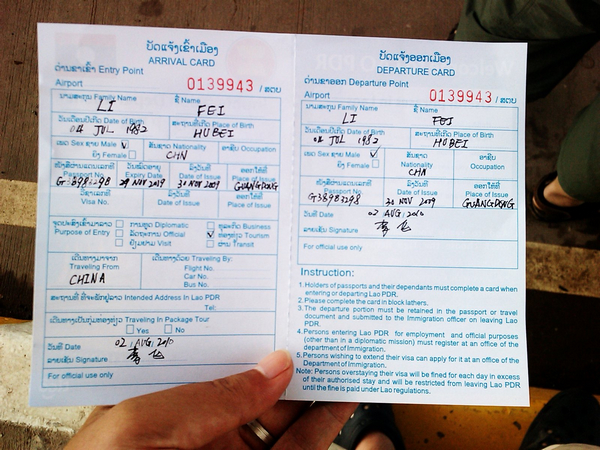 ບັດແຈ້ງເຂົ້າເມືອງ
ARRIVAL CARD
ດ່ານຂາເຂົ້າ Entry Point
Airport 0139943 / ສຕບ
ນາມສະກຸນ Family Name ຊື່ Name
LI FEI
ວັນເດືອນປີເກີດ Date of Birth ສະຖານທີ່ເກີດ Place of Birth
04 JUL 1982 HUBEI
ເພດ Sex ຊາຍ Male ✓ ສັນຊາດ Nationality ອາຊີບ Occupation
ຍິງ Female CHN
ໜັງສືຜ່ານແດນເລກທີ ວັນໝົດອາຍຸ ລົງວັນທີ ອອກໃຫ້ທີ່
Passport No Expiry Date Date of Issue Place of Issue
29 NOV 2019 30 NOV 2009 GUANGDONG
ວີຊາເລກທີ ລົງວັນທີ ອອກໃຫ້ທີ່
Visa No. Date of Issue Place of Issue
ຈຸດປະສົງເຂົ້າມາລາວ ການທູດ Diplomatic ທຸລະກິດ Business
Purpose of Entry ລັດຖະການ Official ✓ ທ່ອງທ່ຽວ Tourism
ຢ້ຽມຢາມ Visit ຜ່ານ Transit
ເດີນທາງມາຈາກ ເດີນທາງດ້ວຍ Traveling By:
Traveling From Flight No.
CHINA Car No.
Bus No.
ສະຖານທີ່ ທີ່ຈະພັກຢູ່ລາວ Intended Address In Lao PDR
Tel:
ເດີນທາງເປັນກຸ່ມທ່ອງທ່ຽວ Traveling In Package Tour
Yes No
ວັນທີ Date 02 AUG. 2010
ລາຍເຊັນ Signature
For official use only
ບັດແຈ້ງອອກເມືອງ
DEPARTURE CARD
ດ່ານຂາອອກ Departure Point
Airport 0139943 / ສຕບ
ນາມສະກຸນ Family Name ຊື່ Name
LI FEI
ວັນເດືອນປີເກີດ Date of Birth ສະຖານທີ່ເກີດ Place of Birth
04 JUL 1982 HUBEI
ເພດ Sex ຊາຍ Male ✓ ສັນຊາດ ອາຊີບ
ຍິງ Female Nationality Occupation
CHN
ໜັງສືຜ່ານແດນເລກທີ ລົງວັນທີ ອອກໃຫ້ທີ່
Passport No Date of Issue Place of Issue
G38983298 30 NOV 2009 GUANGDONG
ວັນທີ Date 02 AUG. 2010
ລາຍເຊັນ Signature
For official use only
Instruction:
1. Holders of passports and their dependants must complete a card when
entering or departing Lao PDR.
2. Please complete the card in block lathers.
3. The departure portion must be retained in the passport or travel
document and submitted to the Immigration officer on leaving Lao
PDR.
4. Persons entering Lao PDR for employment and official purposes
(other than in a diplomatic mission) must register at an office of the
department of Immigration.
5. Persons wishing to extend their visa can apply for it at an office of the
Department of Immigration.
Note: Persons overstaying their visa will be fined for each day in excess
of their authorised stay and will be restricted from leaving Lao PDR
until the fine is paid under Lao regulations.